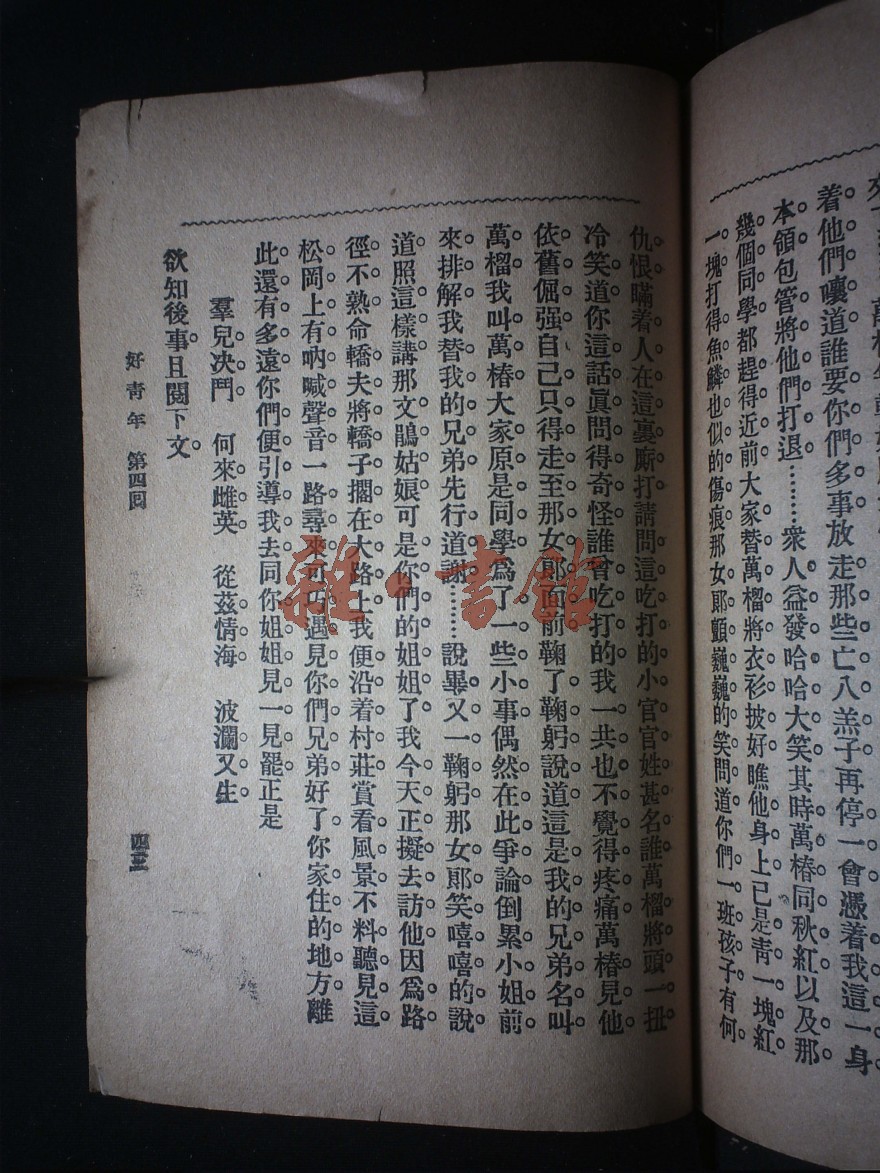 着他們嚷道誰要你們多事放走那些亡八羔子再停一會憑着我這一身
本領包管將他們打退………衆人益發哈哈大笑其時萬椿同秋紅以及那
幾個同學都趕得近前大家替萬榴將衣衫披好瞧他身上已是靑一塊紅
一塊打得魚鱗也似的傷痕那女郞顫巍巍的笑問道你們一班孩子有何
仇恨瞞着人在這裏廝打請問這吃打的小官官姓甚名誰萬榴將頭一扭
冷笑道你這話眞問得奇怪誰曾吃打的我一共也不覺得疼痛萬椿見他
依舊倔强自己只得走至那女郞面前鞠了鞠躬說道這是我的兄弟名叫
萬榴我叫萬椿大家原是同學爲了一些小事偶然在此爭論倒累小姐前
來排解我替我的兄弟先行道謝………說畢又一鞠躬那女郞笑嘻嘻的說
道照這樣講那文鵑姑娘可是你們的姐姐了我今天正擬去訪他因爲路
徑不熟命轎夫將轎子擱在大路上我便沿着村莊賞看風景不料聽見這
松岡上有吶喊聲音一路尋來可巧遇見你們兄弟好了你家住的地方離
此還有多遠你們便引導我去同你姐姐見一見罷正是
羣兒决鬥 何來雌英 從茲情海 波瀾又生
欲知後事且閱下文
好靑年 第四囘 四三
雜·書館